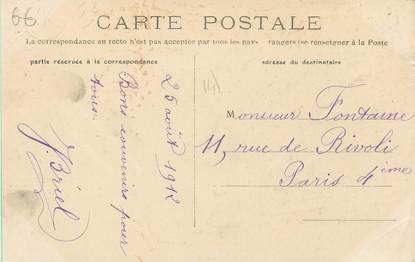 66
CARTE POSTALE
La correspondance au recto n'est pas acceptée par tous les pays
rangers (se renseigner à la Poste
partie réservée à la correspondance
adresse du destinataire
25 août 1912
Bons souvenirs pour
tous.
Monsieur Fontaine
11, rue de Rivoli
Paris 4ème